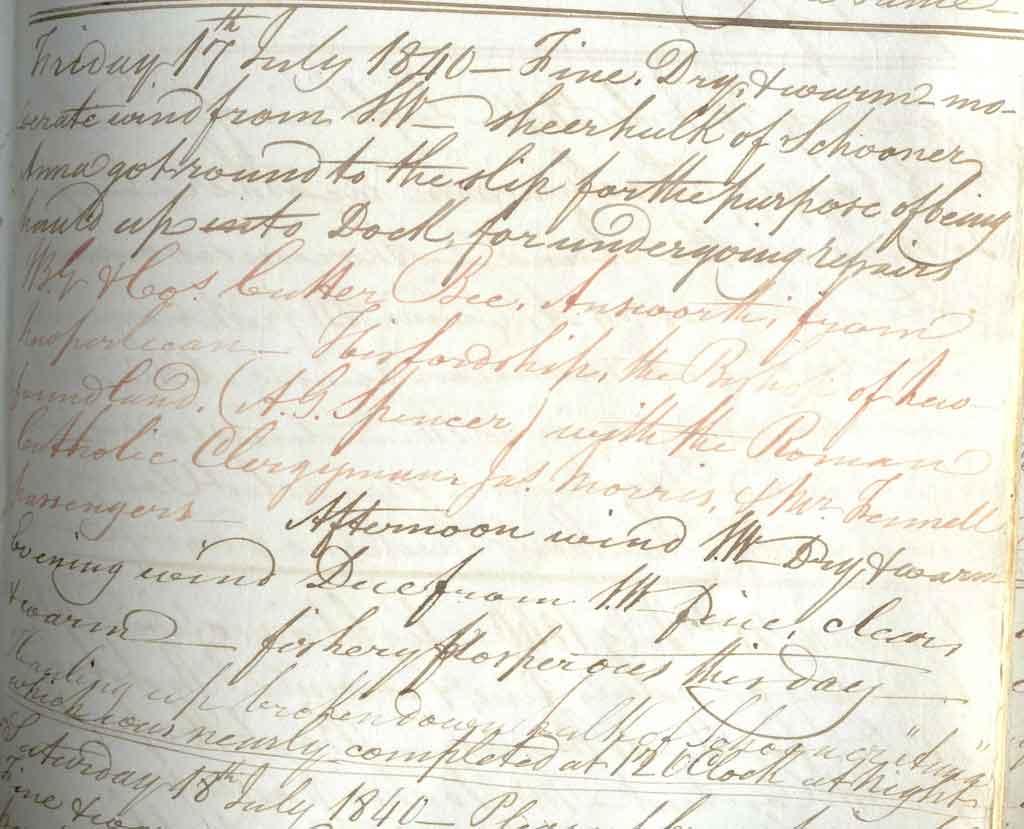 the same
Friday 17th July 1840 – Fine, Dry, & warm – mo-
derate wind from S.W – sheerhulk of Schooner
Anna got round to the slip for the purpose of being
hauld up into Dock, for undergoing repairs
W.G & Cos. Cutter Bee, Answorth, from
His Lordship, the Bishop of New-
foundland, (A.G. Spencer) with the Roman
Catholic Clergyman Jas. Morris, & Mr. Fennell
passengers – Afternoon wind S.W Dry & warm
Evening wind Due from S.W fine, clear
& warm – fishery prosperous this day –
Hauling up broken down hulk of Schooner "Anna"
which was nearly completed at 12 OClock at night
Saturday 18th July 1840 –
Fine &